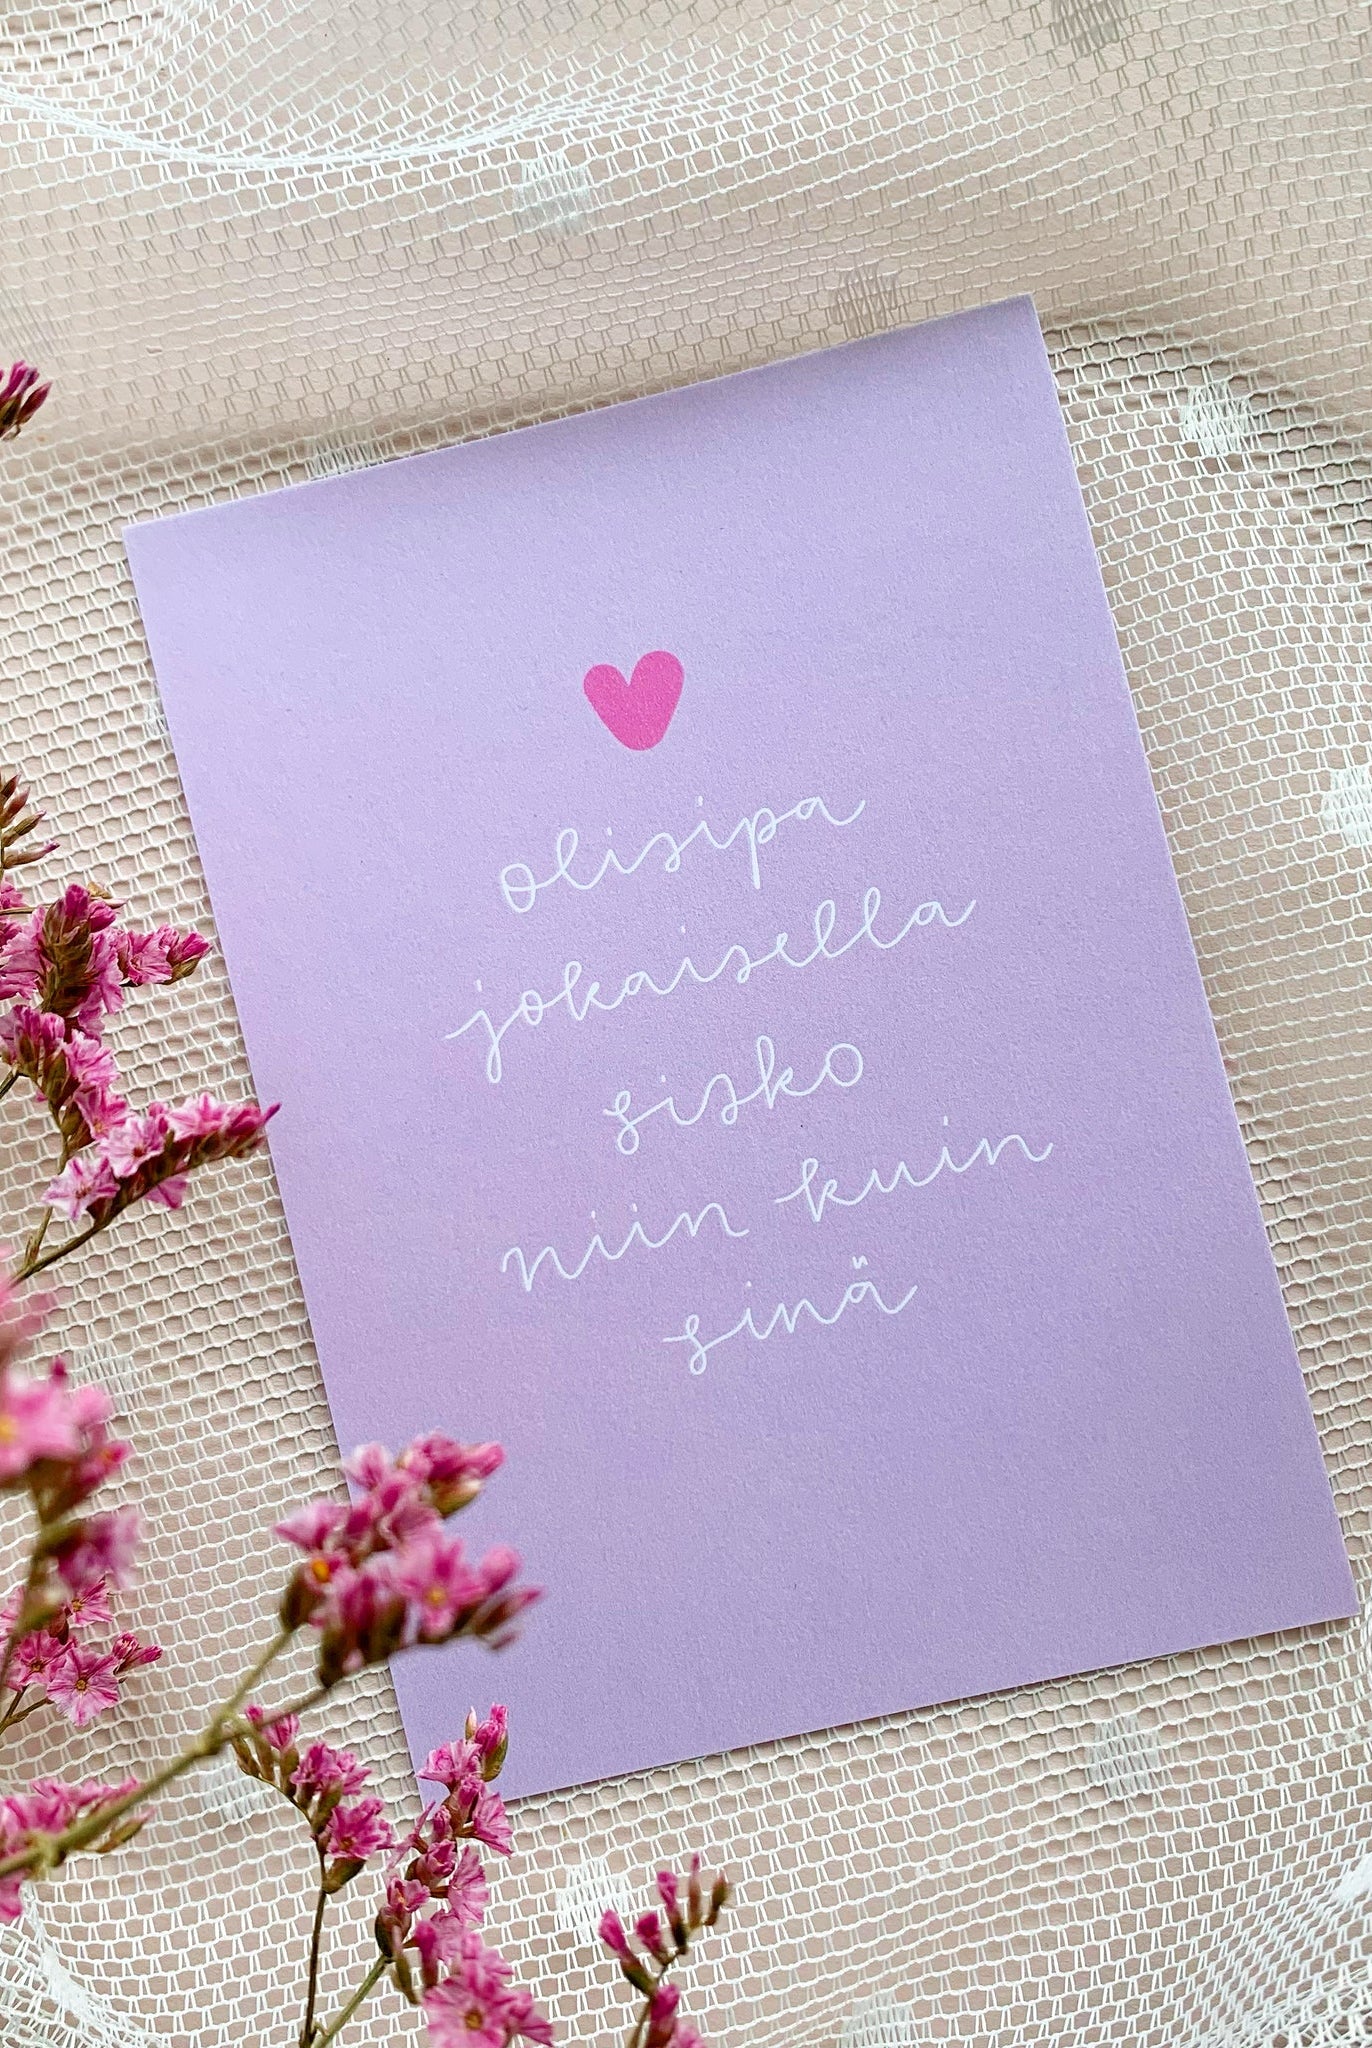 olisipa
jokaisella
sisko
niin kuin
sinä